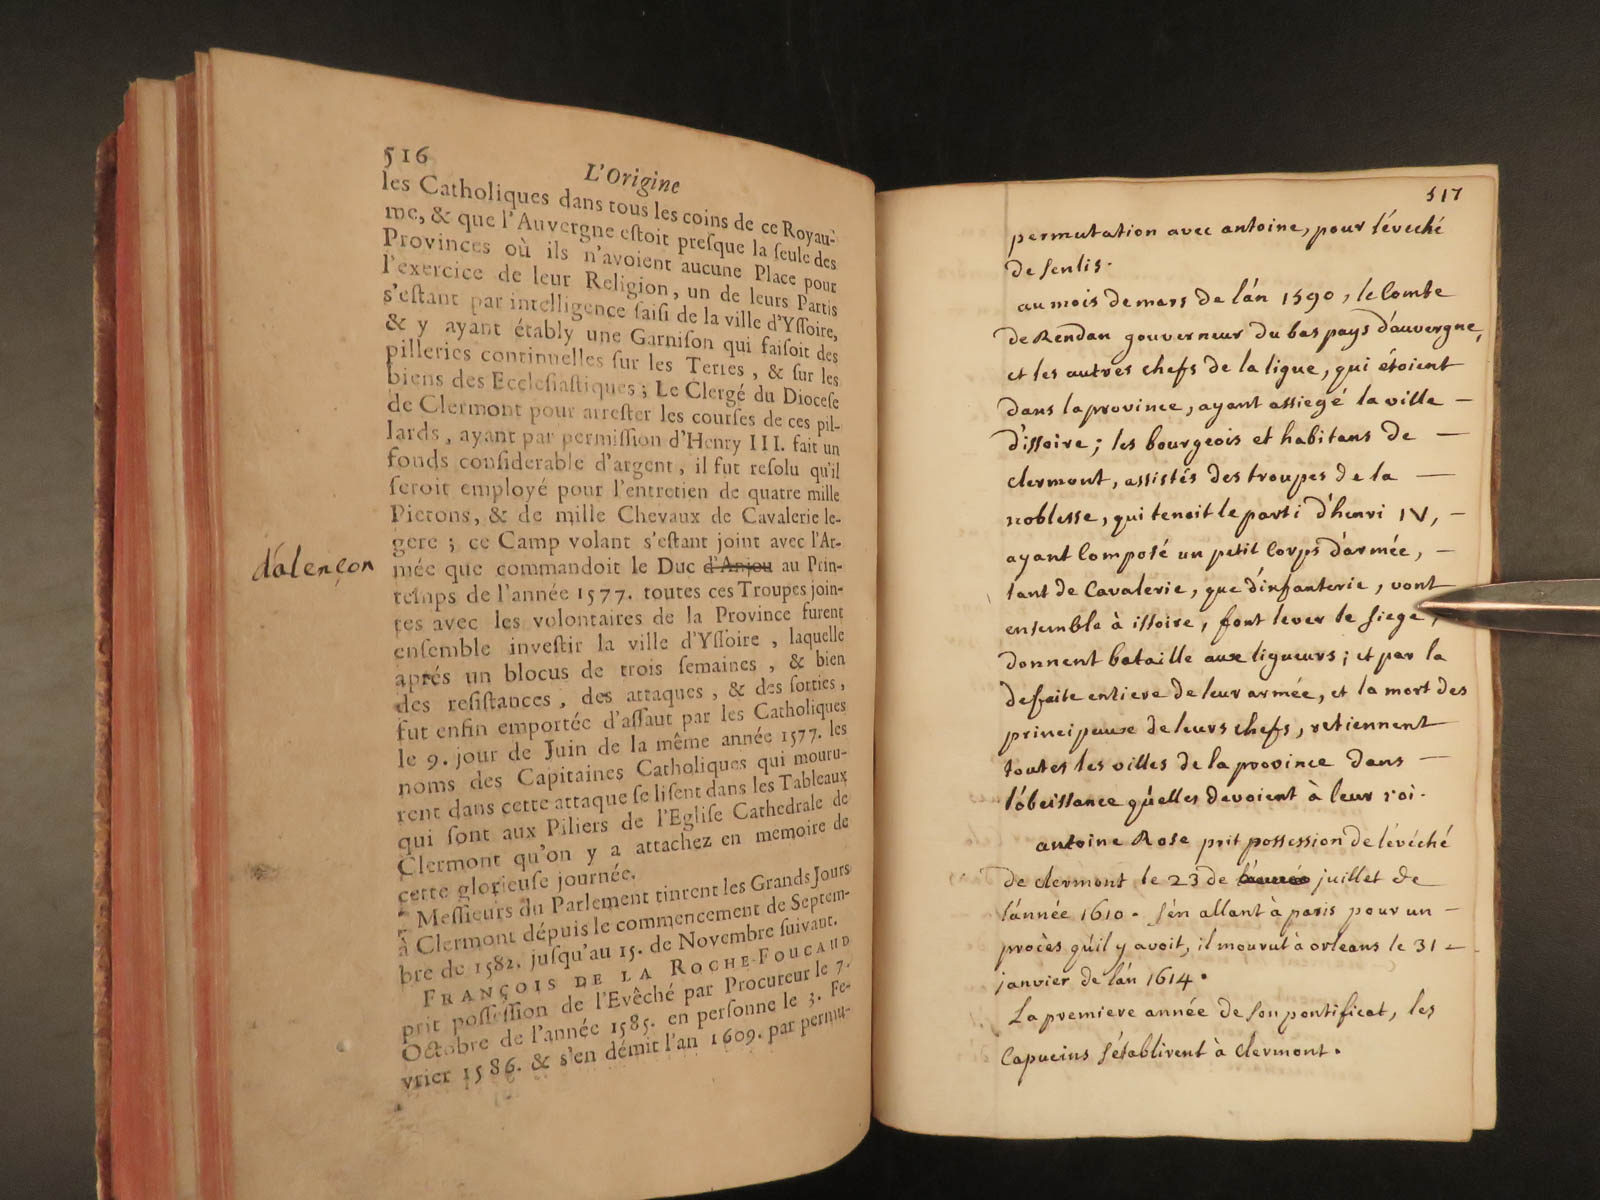 516
L'Origine
les Catholiques dans tous les coins de ce Royau-
me, & que l'Auvergne eſtoit preſque la ſeule des
Provinces où ils n'avoient aucune Place pour
l'exercice de leur Religion, un de leurs Partis
s'eſtant par intelligence ſaiſi de la ville d'Yſſoire,
& y ayant étably une Garniſon qui faiſoit des
pilleries continuelles ſur les Terres, & ſur les
biens des Eccleſiaſtiques; Le Clergé du Dioceſe
de Clermont pour arreſter les courſes de ces pil-
lards, ayant par permiſſion d'Henry III. fait un
fonds conſiderable d'argent, il fut reſolu qu'il
ſeroit employé pour l'entretien de quatre mille
Pietons, & de mille Chevaux de Cavalerie le-
gere; ce Camp volant s'eſtant joint avec l'Ar-
mée que commandoit le Duc d'Anjou au Prin-
temps de l'année 1577. toutes ces Troupes join-
tes avec les volontaires de la Province furent
enſemble inveſtir la ville d'Yſſoire, laquelle
aprés un blocus de trois ſemaines, & bien
des reſiſtances, des attaques, & des ſorties,
fut enfin emportée d'aſſaut par les Catholiques
le 9. jour de Juin de la même année 1577. les
noms des Capitaines Catholiques qui mouru-
rent dans cette attaque ſe liſent dans les Tableaux
qui ſont aux Piliers de l'Egliſe Cathedrale de
Clermont qu'on y a attachez en memoire de
cette glorieuſe journée.
Meſſieurs du Parlement tinrent les Grands Jours
à Clermont dépuis le commencement de Septem-
bre de 1582. juſqu'au 15. de Novembre ſuivant.
FRANÇOIS DE LA ROCHE-FOUCAUD
prit poſſeſſion de l'Evêché par Procureur le 7.
Octobre de l'année 1585. en perſonne le 3. Fe-
vrier 1586. & s'en démit l'an 1609. par permu-
d'alençon
517
permutation avec antoine, pour l'évêché
de senlis.
au mois de mars de l'an 1590, le Comte
de Rendan gouverneur du bas pays d'auvergne,
et les autres chefs de la ligue, qui étoient
dans la province, ayant assiegé la ville —
d'issoire; les bourgeois et habitans de —
clermont, assistés des troupes de la —
noblesse, qui tenoit le parti d'henri IV, —
ayant Composé un petit Corps d'armée, —
tant de Cavalerie, que d'infanterie, vont
ensemble à issoire, font lever le siege,
donnent bataille aux ligueurs; et par la
defaite entiere de leur armée, et la mort des
principaux de leurs chefs, retiennent
toutes les villes de la province dans —
l'obeissance qu'elles devoient à leur roi.
antoine Rose prit possession de l'évéché
de clermont le 23 de juillet de
l'année 1610. s'en allant à paris pour un —
procès qu'il y avoit, il mourut à orleans le 31 —
janvier de l'an 1614.
La premiere année de son pontificat, les
Capucins s'établirent à Clermont.